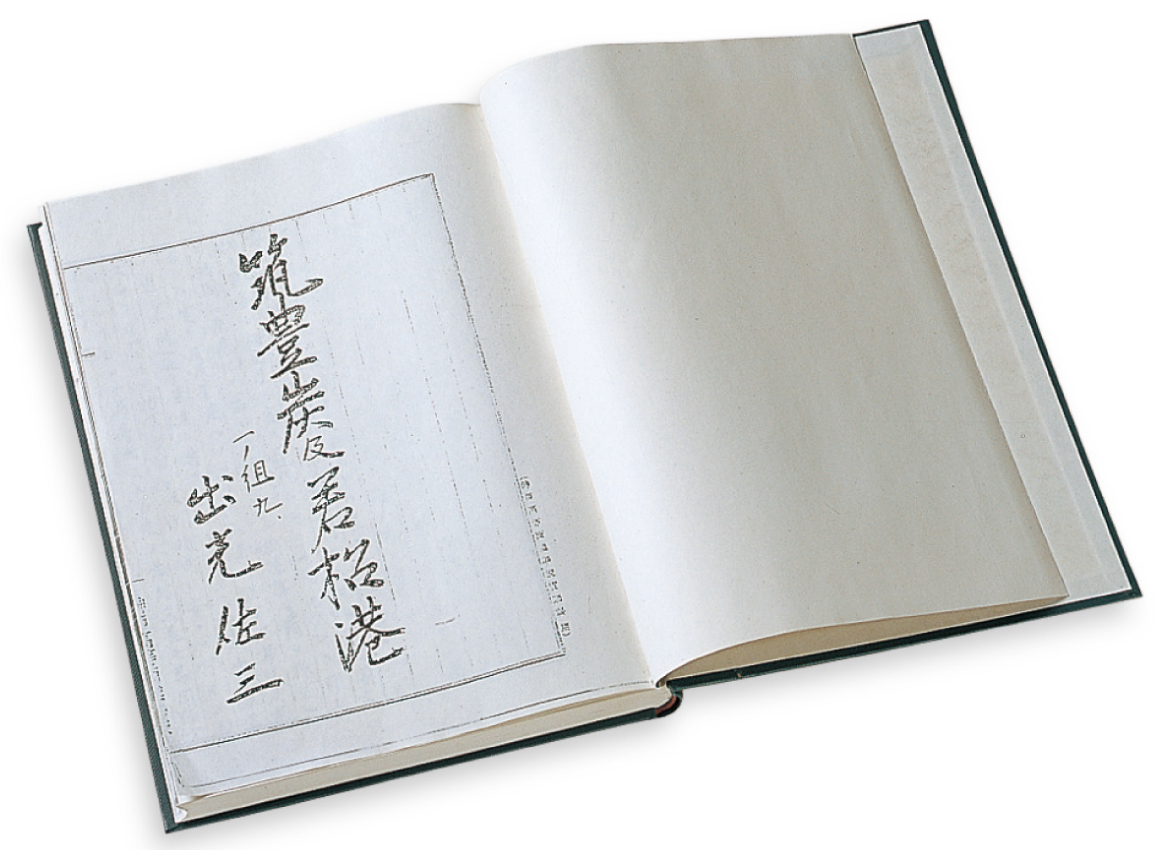 筑豊炭及若松港
一ノ組九、
出光佐三